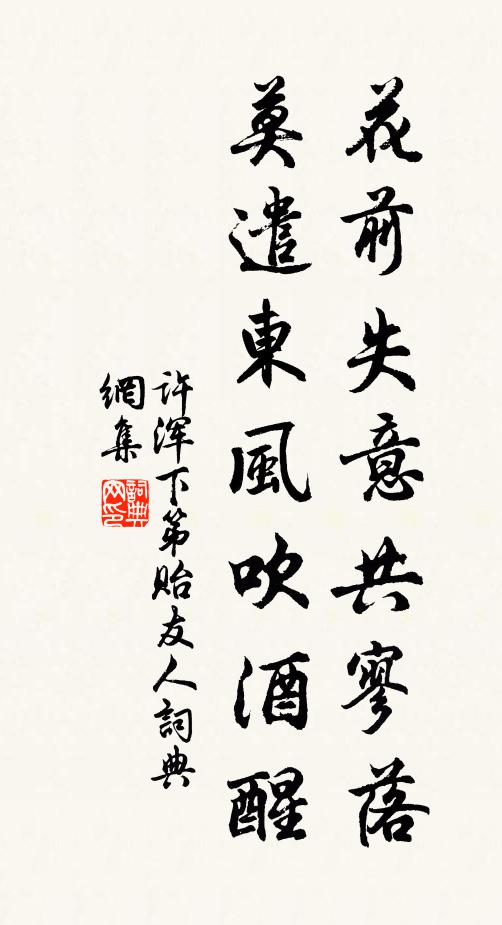 花前失意共寥落
莫遣東風吹酒醒
許渾下第貽友人詞典
網集
詞典網印